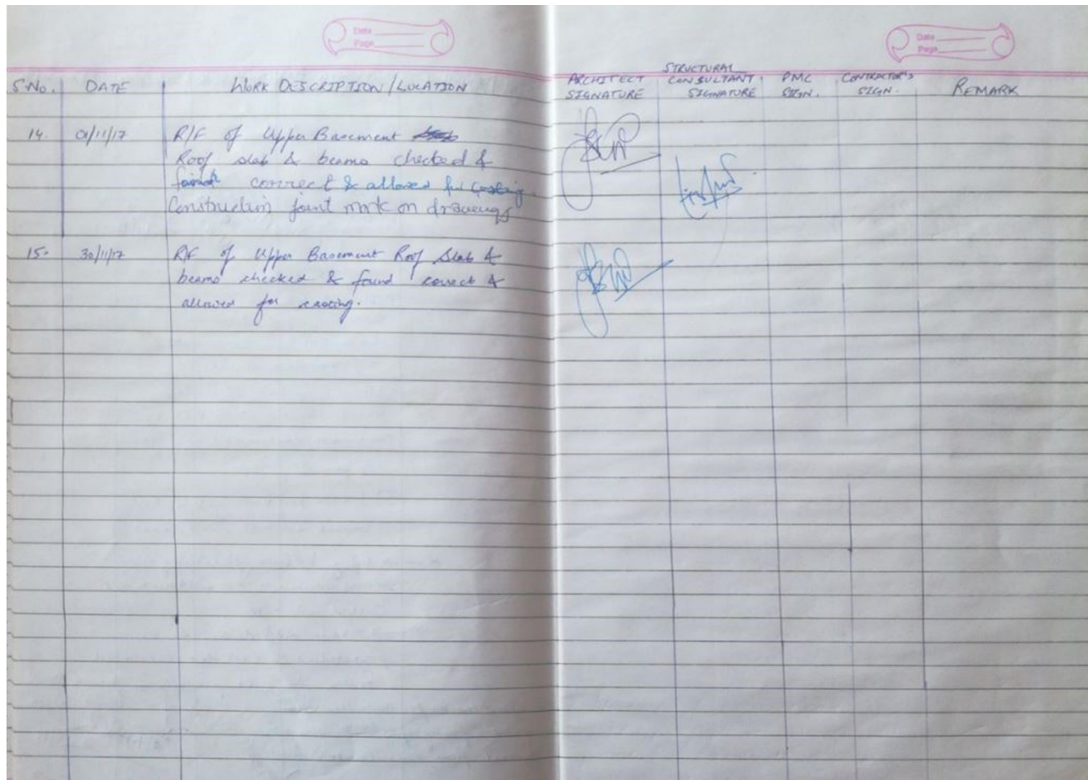 Date
Page
Date
Page
S.No. DATE WORK DESCRIPTION / LOCATION ARCHITECT SIGNATURE STRUCTURAL CONSULTANT SIGNATURE PMC SIGN. CONTRACTOR'S SIGN. REMARK
14. 01/11/17 R/F of Upper Basement
Roof slab & beams checked &
found correct & allowed for casting.
Construction joint mark on drawings
15. 30/11/17 R/F of Upper Basement Roof Slab &
beams checked & found correct &
allowed for casting.